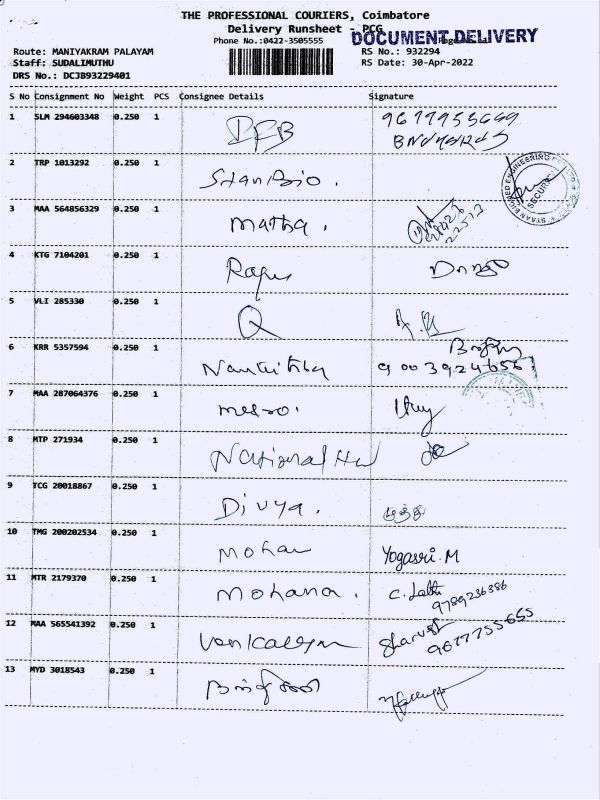 THE PROFESSIONAL COURIERS, Coimbatore
Delivery Runsheet - PCG
DOCUMENT DELIVERY
Phone No.:0422-3505555
Route: MANIYAKRAM PALAYAM
RS No.: 932294
Staff: SUDALIMUTHU
RS Date: 30-Apr-2022
DRS No.: DCJB93229401
S No Consignment No Weight PCS Consignee Details Signature
1 SLM 294603348 0.250 1 DFB
2 TRP 1013292 0.250 1
SECURITY
3 MAA 564856329 0.250 1 Matha.
4 KTG 7104201 0.250 1
5 VLI 285330 0.250 1
6 KRR 5357594 0.250 1 9003924656
7 MAA 287064376 0.250 1
8 MTP 271934 0.250 1 National
9 TCG 20018867 0.250 1 Divya.
10 TMG 200202534 0.250 1 Mohan Yogasri.M
11 MTR 2179370 0.250 1 Mohana. C. Lathi
9789236386
12 MAA 565541392 0.250 1
9677755655
13 MYD 3018543 0.250 1